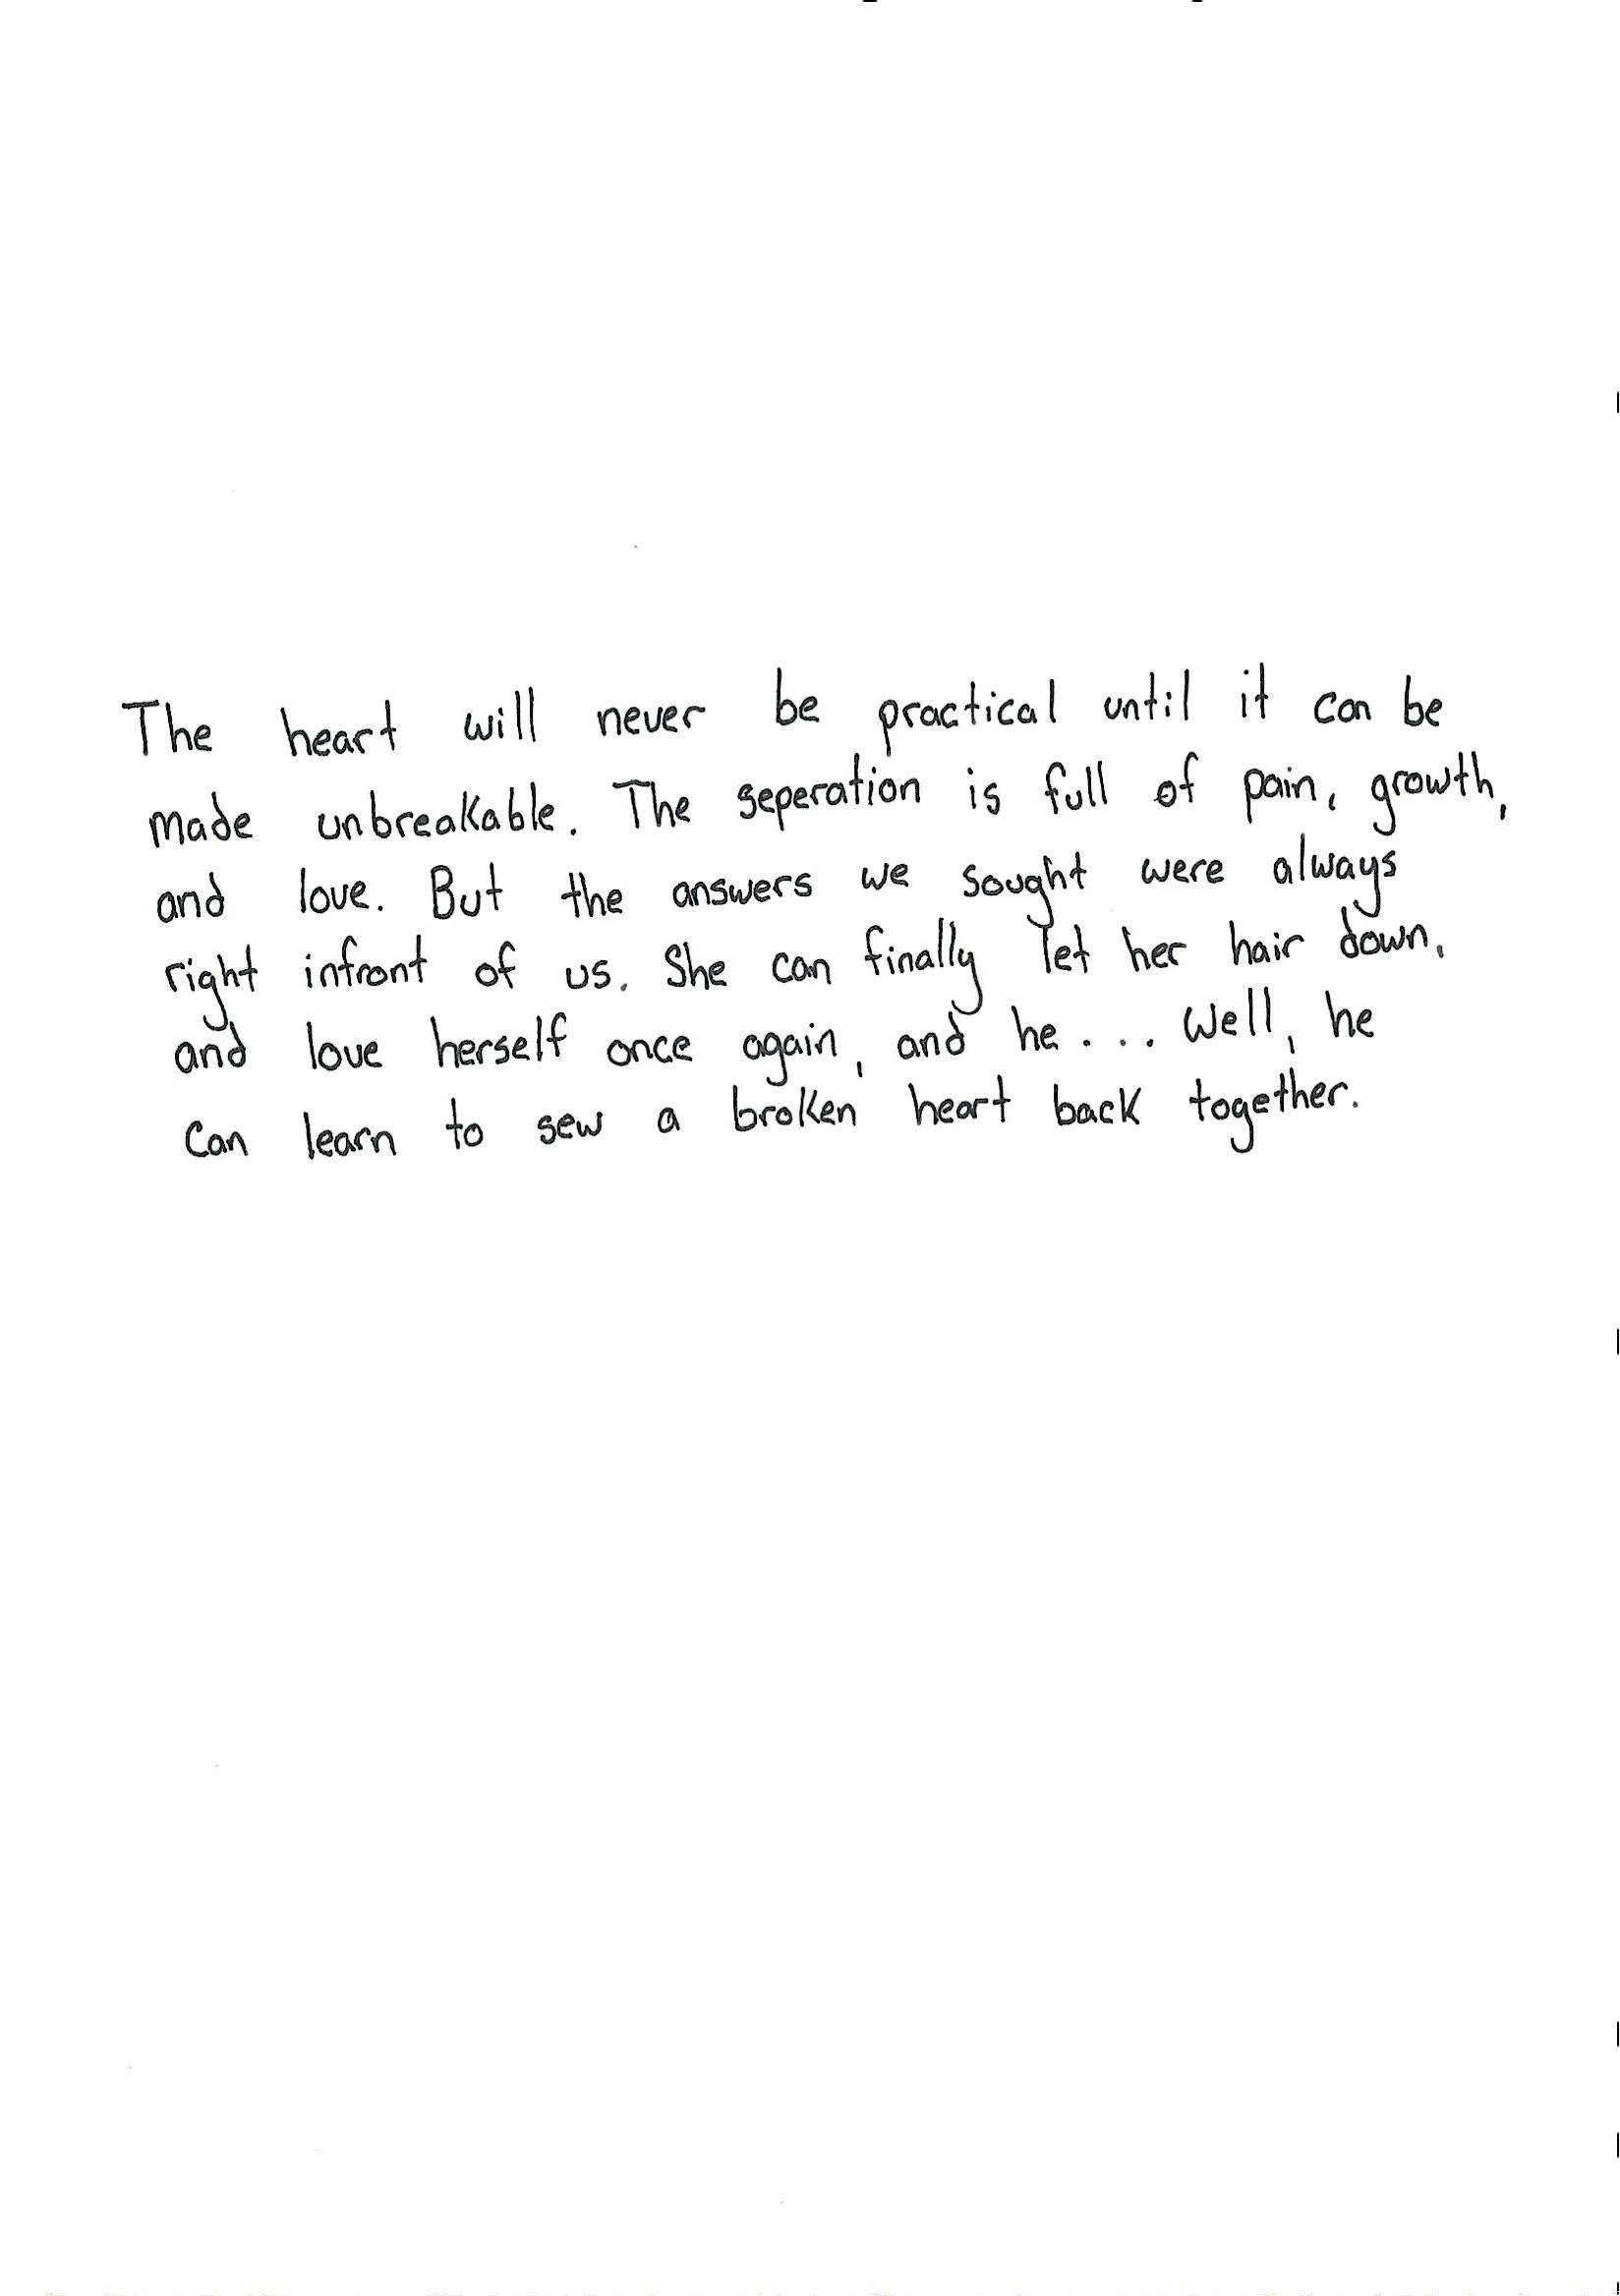 The heart will never be practical until it can be
made unbreakable. The seperation is full of pain, growth,
and love. But the answers we sought were always
right infront of us. She can finally let her hair down,
and love herself once again, and he... Well, he
can learn to sew a broken heart back together.